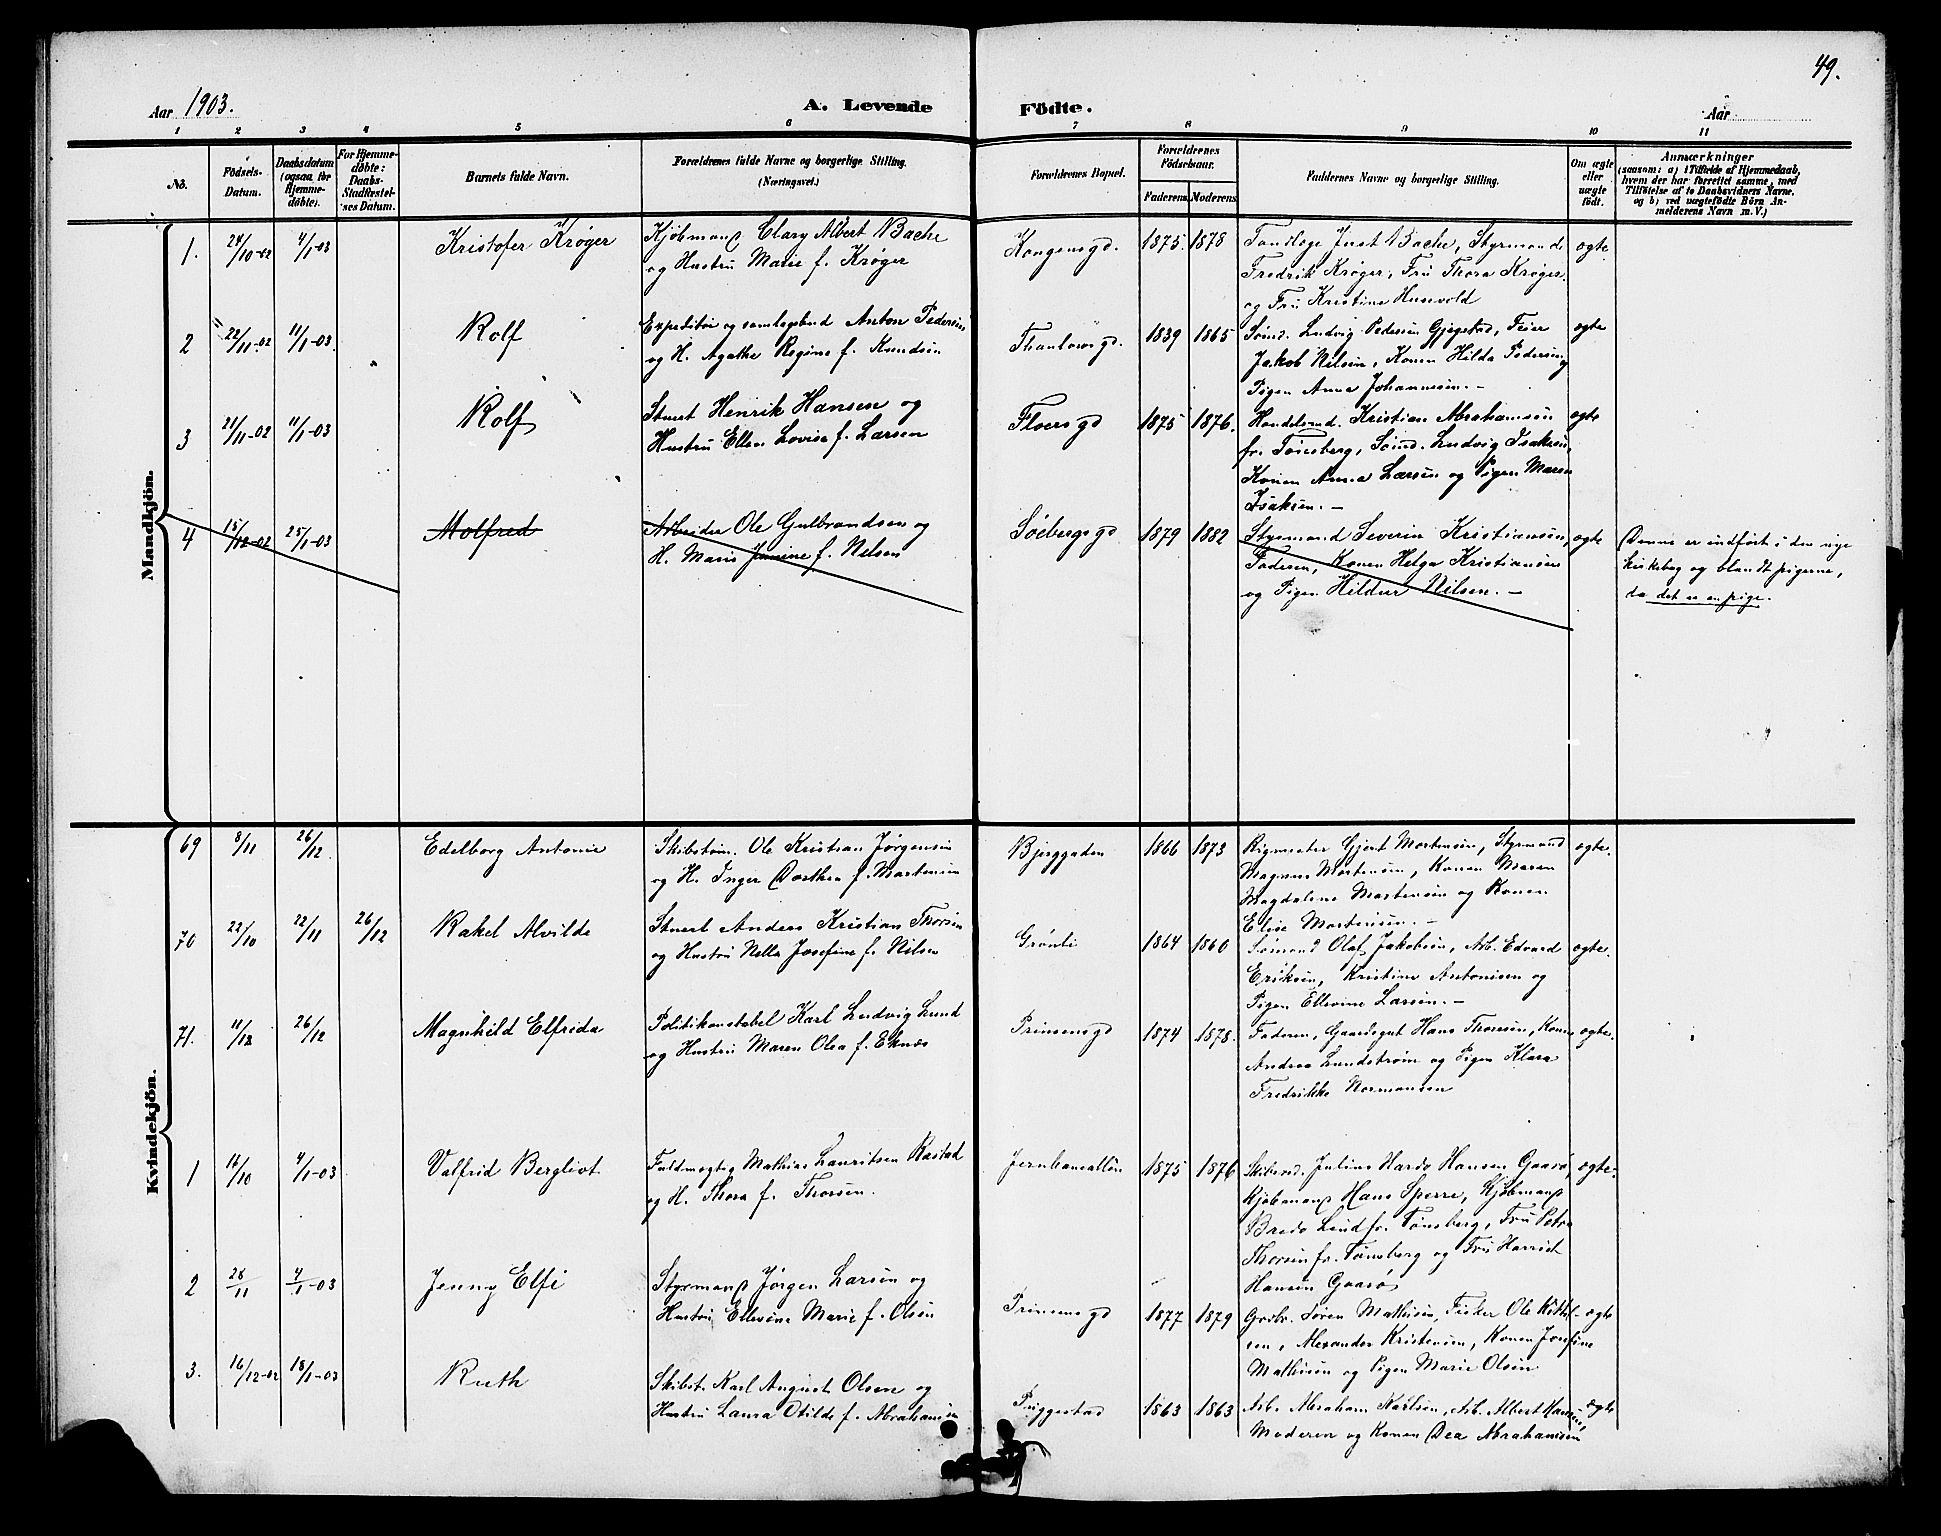 49.
Aar 1903.
A. Levende Födte.
Aar
1 2 3 4 5 6 7 8 9 10 11
No.
Födsels-Datum.
Daabsdatum (ogsaa for Hjemme-döbte).
For Hjemme-döbte: Daabs-Stadfæstel-ses Datum.
Barnets fulde Navn.
Forældrenes fulde Navne og borgerlige Stilling.
(Næringsvei.)
Forældrenes Bopæl.
Forældrenes Födselsaar.
Faderens. Moderens.
Faddernes Navne og borgerlige Stilling.
Om ægte eller uægte födt.
Anmærkninger
(saasom: a) i Tilfælde af Hjemmedaab,
hvem der har forrettet samme, med
Tilföielse af to Daabsvidners Navne,
og b) ved uægtefödte Börn An-
melderens Navn m. V.)
Mandkjön.
1. 24/10-02 4/1-03 Kristofer Krøger Kjøbmand Clary Albert Bache Kongensgd. 1875. 1878 Tandlæge Just Bache, Styrmand ægte
og Hustru Marie f. Krøger Fredrik Krøger, Fru Thora Krøger
og Fru Kristine Husvold
2 22/11-02 11/1-03. Rolf Expeditør og samlagsbud Anton Pedersen Thaulowsgd. 1839 1865 Sømd. Ludvig Pedersen Gjegstad, Feier ægte
og H. Agathe Regine f. Knudsen Jakob Nilsen, Konen Hilda Pedersen og
Pigen Anna Johannesen. -
3 21/11-02 11/1-03 Rolf Stuert Henrik Hansen og Floersgd 1875 1876. Handelsmd. Kristian Abrahamsen ægte
Hustru Ellen Lovise f. Larsen fr. Tønsberg, Sømd. Ludvig Isaksen,
Konen Anna Larsen og Pigen Maren
Isaksen. -
4 15/12-02 25/1-03 Molfred Arbeider Ole Gulbrandsen og Søebergsgd 1879 1882 Styrmand Severin Kristiansen, ægte Denne er indført i den nye
H. Marie Janine f. Nilsen Faderen, Konen Helga Kristiansen kirkebog og blandt pigerne,
og Pigen Hildur Nilsen. - da det er en pige.
Kvindekjön.
69 8/11 26/12 Edelborg Antonie Skibstøm. Ole Kristian Jørgensen Bjerggaden 1866 1873 Rigmester Gjert Mortensen, Styrmand ægte.
og H. Inger Dorthea f. Mortensen Magnus Mortensen, Konen Maren
Magdalene Mortensen og Konen
Elise Mortensen. -
70 22/10 22/11 26/12 Rakel Alvilde Stuert Anders Kristian Thorsen Grønli 1864 1860 Sømand Olaf Jakobsen, Arb. Edvard ægte.
og Hustru Nella Josefine f. Nilsen Eriksen, Kristine Antonisen og
Pigen Ellevine Larsen. -
71. 11/12 26/12 Magnhild Elfrida Politikonstabel Karl Ludvig Lund Prinsensgd 1874 1878. Faderen, Gaardsgut Hans Thorsen, Konen ægte.
og Hustru Maren Olea f. Eknæs Andrea Lundstrøm og Pigen Klara
Fredrikke Normansen
1 16/10 4/1-03 Valfrid Bergliot Fuldmægtig Mathias Lauritsen Rastad Jernbanealleen 1875 1876 Skibsred. Julius Hardo Hansen Gaasø, ægte.
og H. Thora f. Thorsen. Kjøbmand Hans Sperre, Kjøbmand
Bredo Lind fr. Tønsberg, Fru Petra
Thorsen fr. Tønsberg og Fru Harriet
Hansen Gaasø
2 28/11 4/1-03 Jenny Elfi Styrmand Jørgen Larsen og Prinsensgd 1877 1879 Søren Mathisen, Fisker Ole ægte
Hustru Ellevine Marie f. Olsen sen, Alexander Kristensen, Konen Josefine
Mathisen og Pigen Marie Olsen
3. 16/12-02 18/1-03 Ruth Skibst. Karl August Olsen og Puggestad 1863 1863 Arb. Abraham Karlsen, Arb. Albert Hansen, ægte
Hustru Laura Otilde f. Abrahamsen Moderen og Konen Dea Abrahamsen